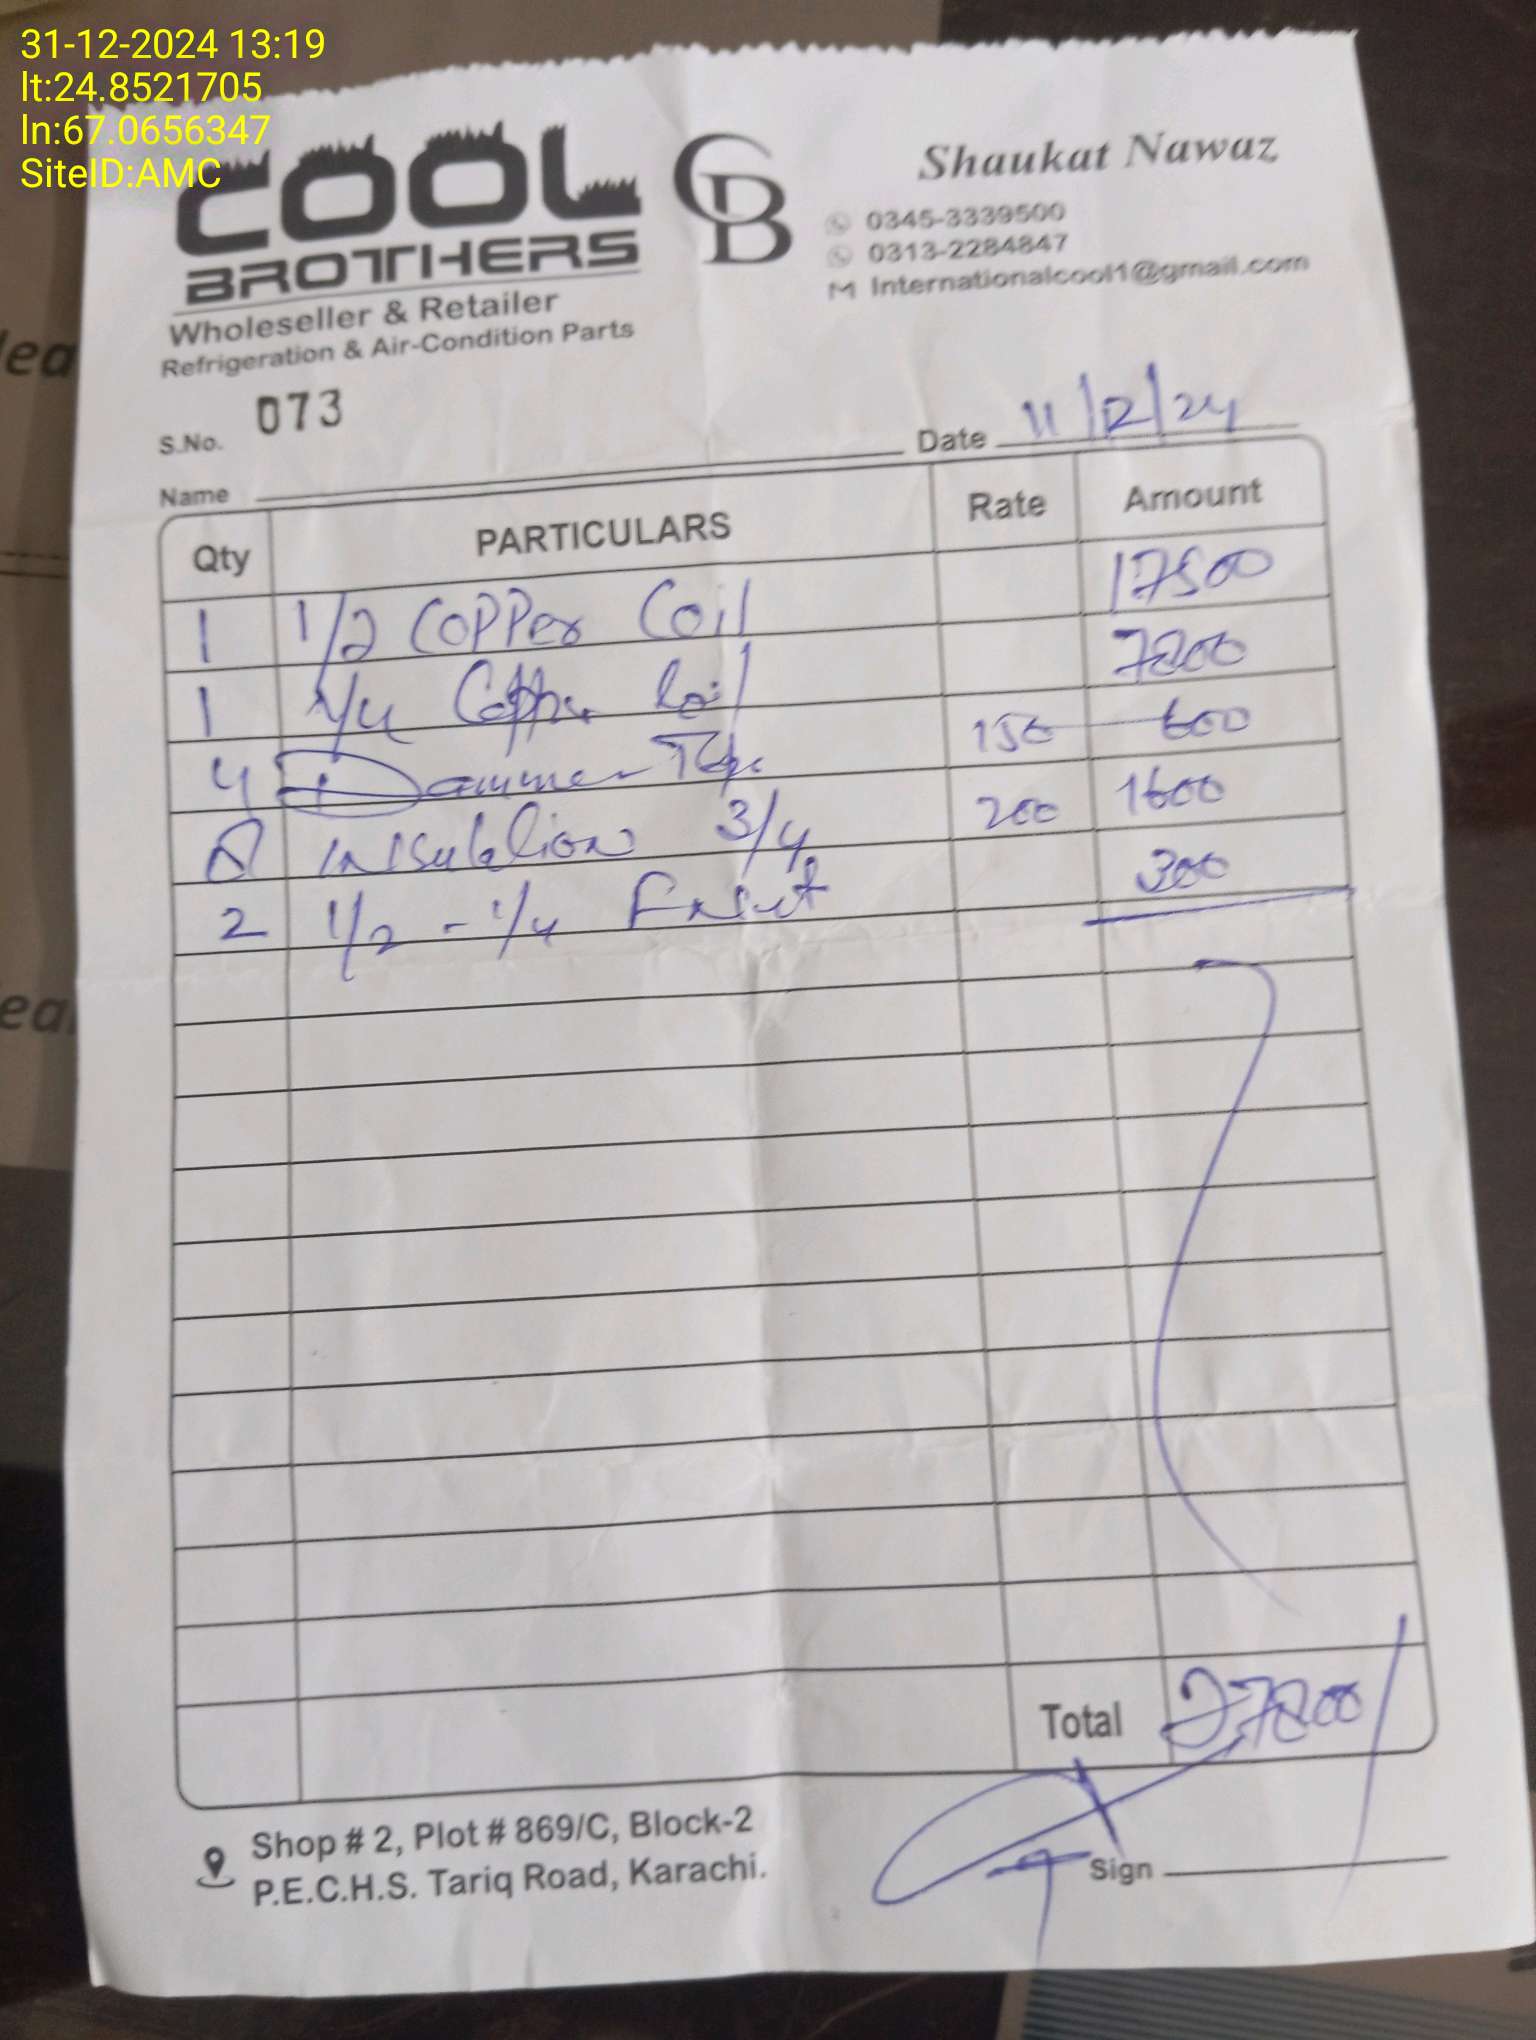 31-12-2024 13:19
lt:24.8521705
ln:67.0656347
SiteID:AMC
COOL
BROTHERS
CB
Wholeseller & Retailer
Refrigeration & Air-Condition Parts
Shaukat Nawaz
0345-3339500
0313-2284847
Internationalcool1@gmail.com
S.No. 073
Date 11/12/24
Name
Qty PARTICULARS Rate Amount
1 1/2 Copper Coil 17500
1 1/4 Copper Coil 7800
4 Dammer Tape 150 600
8 insulation 3/4 200 1600
2 1/2 - 1/4 300
Total 27800
Shop # 2, Plot # 869/C, Block-2
P.E.C.H.S. Tariq Road, Karachi.
Sign
lea
ea